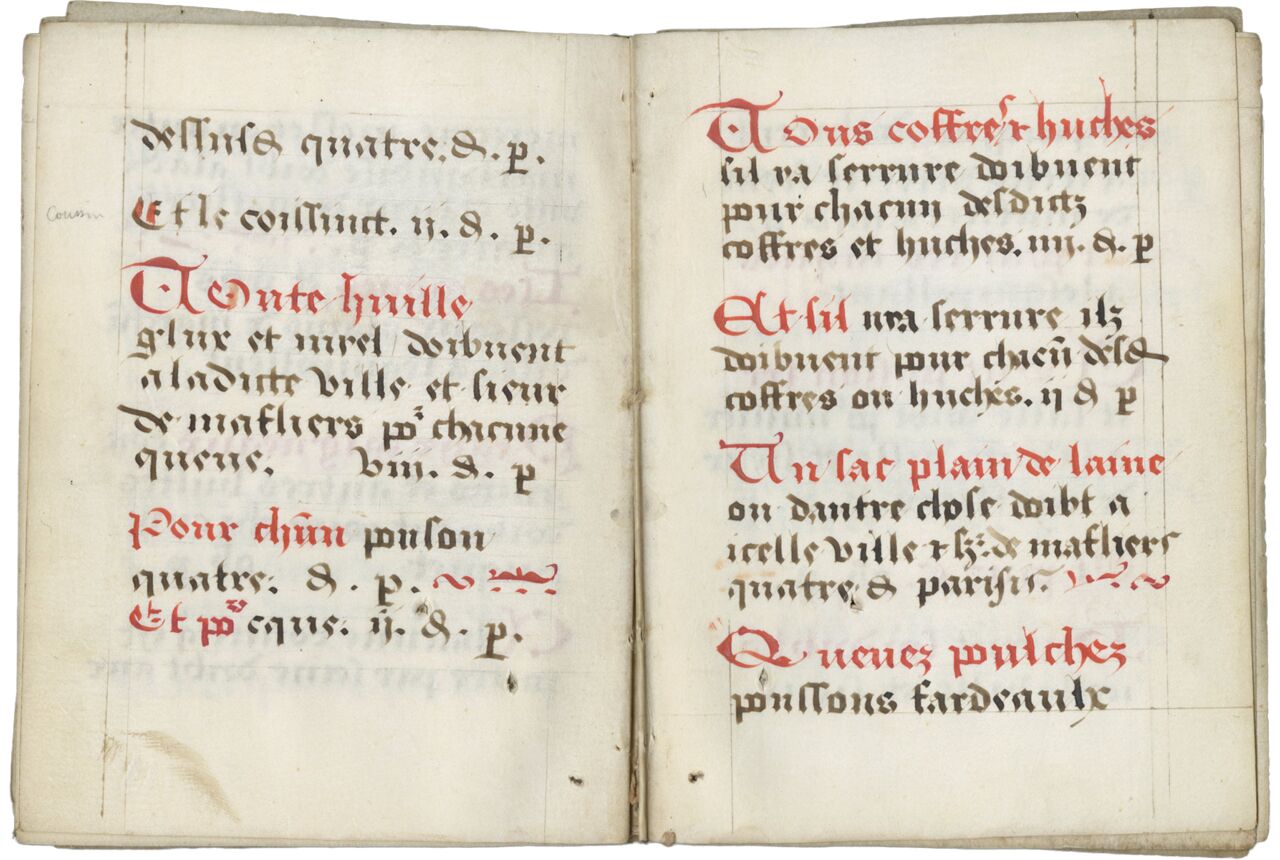 dessusd quatre. d. p.
Coussin
Et le coissinct. ii. d. p.
Toute huille
glux et mrel doibuent
a ladicte ville et sieur
de mastiers po chacune
queue. viii. d. p
Pour chun ponson
quatre. d. p.
Et po cque. ii. d. p.
Tous coffres et huches
sil ya serrure doibuent
pour chacun desdictz
coffres et huches. iiii. d. p
Et sil nya serrure ilz
doibuent pour chacun desd
coffres ou huches. ii d p
Un sac plain de laine
ou dautre close doibt a
icelle ville de mastiers
quatre d parisis.
Queuez poulchez
poussons fardeaulx